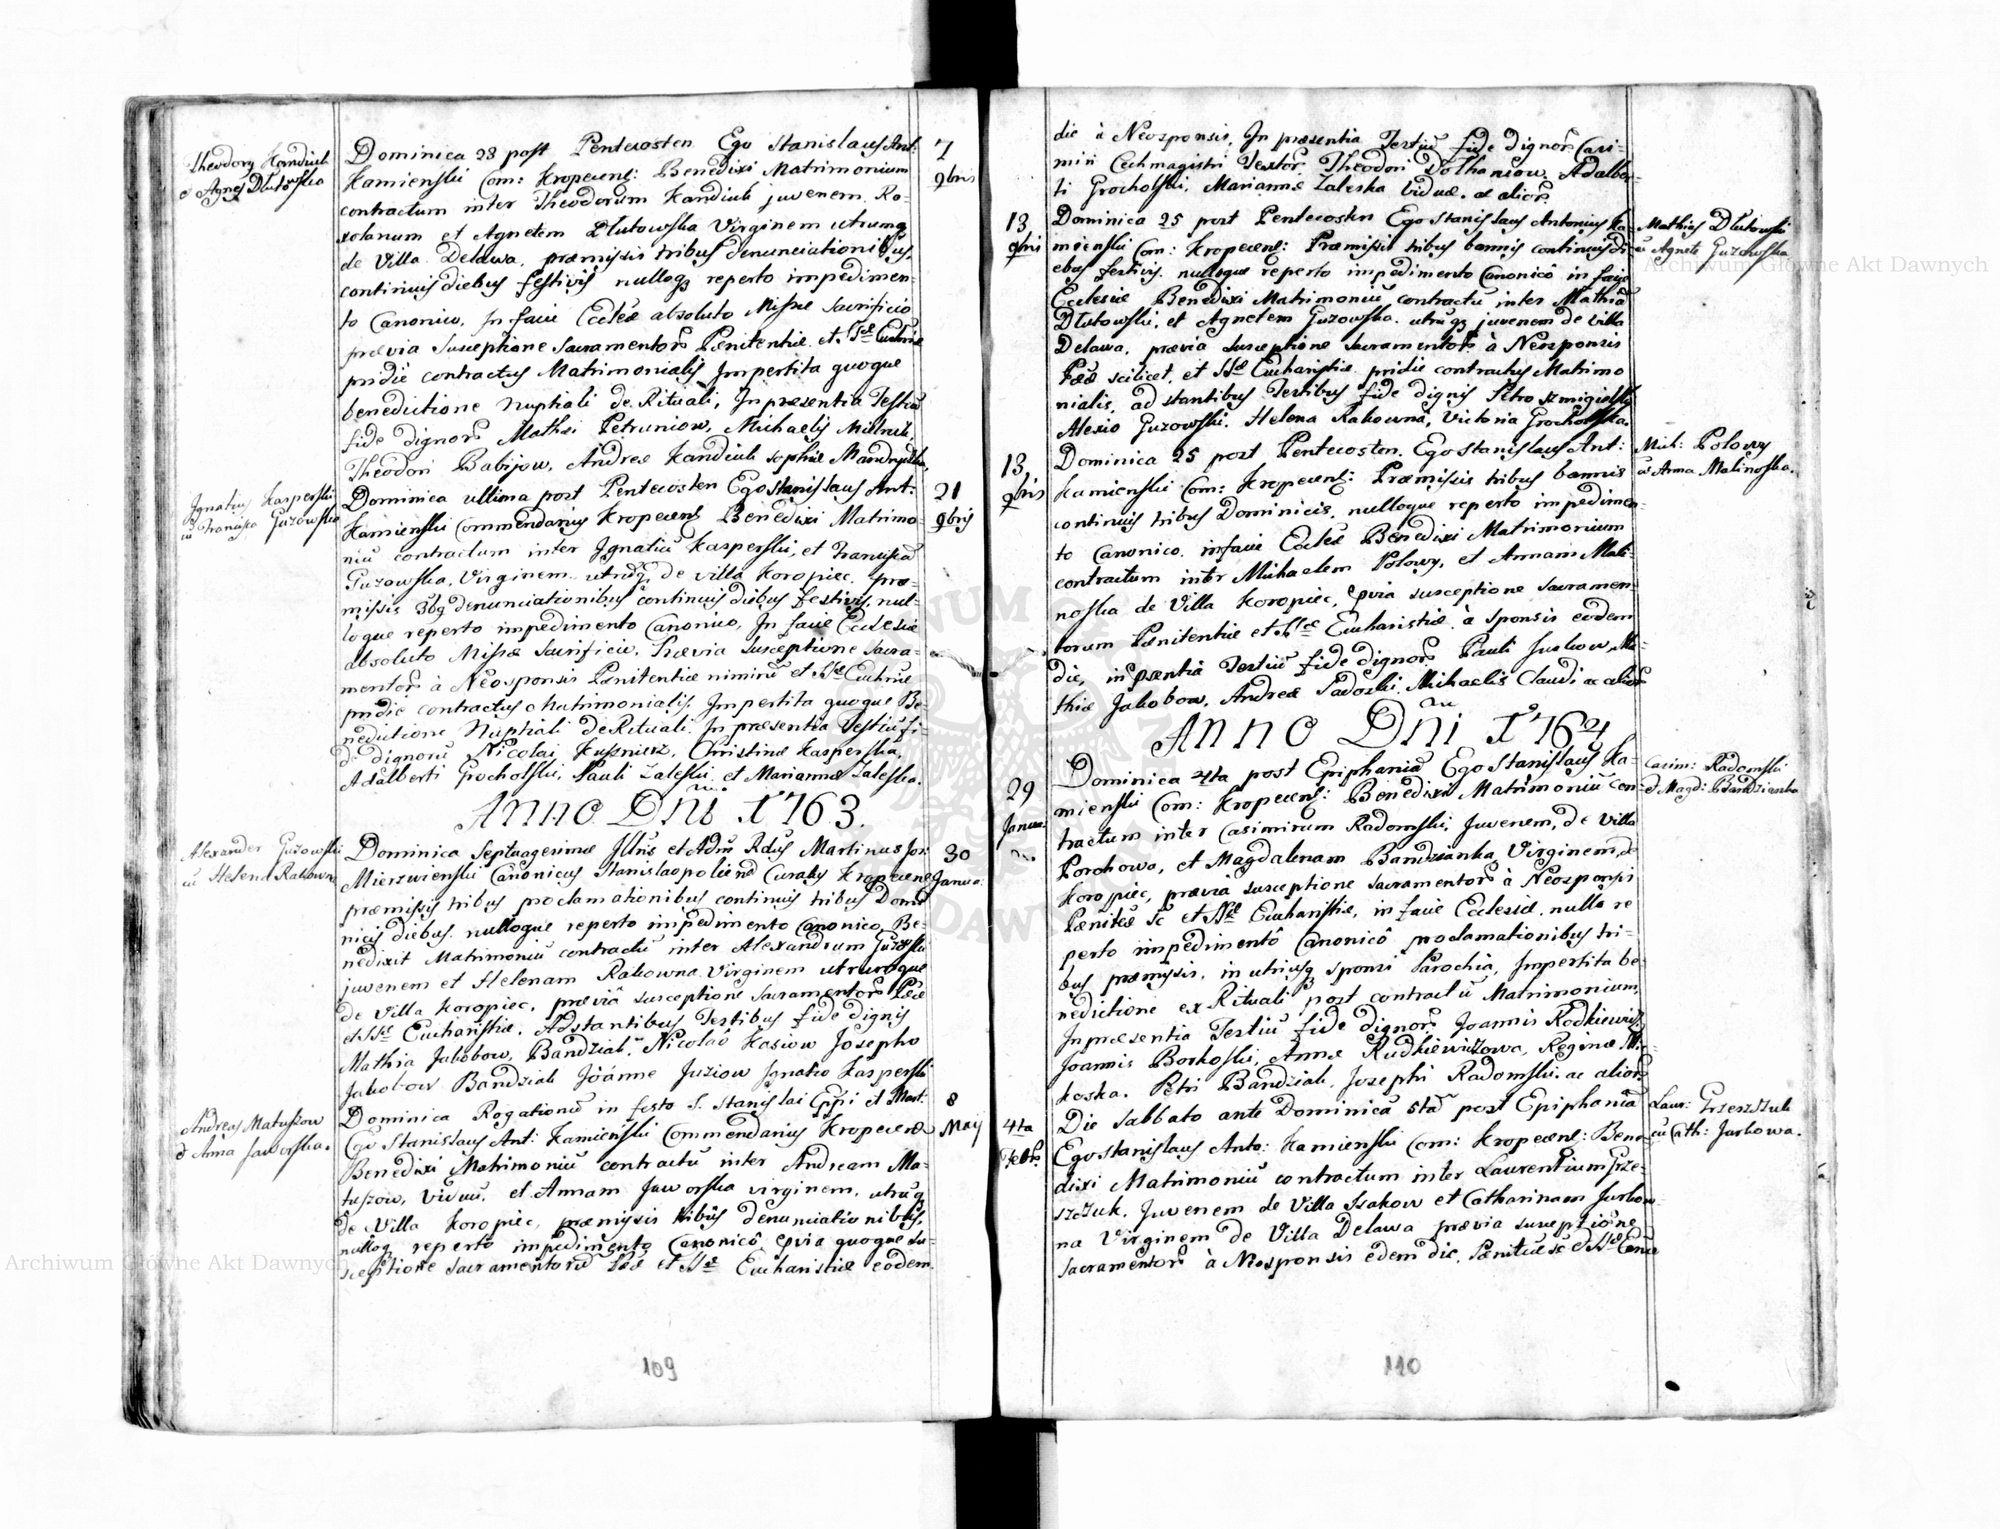 Theodory Handiuk
e Agnes Dłutowska
Dominica 23 post Pentecosten Ego Stanislaus Ant:
Kamienski Com: Kropecens: Benedixi Matrimonium
contractum inter Theodorum Kandiuk juvenem Ro-
xolanum et Agnetem Dlutowska Virginem utrumq
de Villa Delawa, præmissis tribus denunciationibus,
continuis diebus festivis nulloq reperto impedimen-
to Canonico, In facie Ecclæ absoluto Missæ Sacrificio
prævia susceptione Sacramentor Pænitentiæ et SSæ Euchriæ
pridie contractus Matrimonialis Impertita quoque
benedictione Nuptiali de Rituali, In præsentia Testiu
fide dignor Mathæi Petruniow, Michaelis Mielnik,
Theodori Babijow, Andreæ Kandiuk Sophiæ
7
9bris
Ignatius Kasperski
cu Francisca Guzowska
Dominica ultima post Pentecosten Ego Stanislaus Ant:
Kamienski Commendarius Kropecens Benedixi Matrimo-
niu contractum inter Ignatiu Kasperski, et Francisca
Guzowska, Virginem utruq de villa Koropiec, præ-
missis 3bq denunciationibus continuis diebus festivis, nul-
loque reperto impedimento Canonico, In facie Ecclesiæ
absoluto Missæ Sacrificio, Prævia susceptione Sacra-
mentor à Neosponsis Pænitentiæ nimiru et SSæ Euchriæ
pridie contractus Matrimonialis, Impertita quoque Be-
nedictione Nuptiali de Rituali. In præsentia Testiu fi-
de dignoru Nicolai Kusznierz, Christinæ Kasperska,
Adalberti Grocholski, Pauli Zaleski, et Mariannæ Zaleska.
21
9bris
ANNO Dni 1763.
Alexander Guzowski
cu Helena Rakowna
Dominica Septuagesimæ Illris et Adm Rdus Martinus Jos:
Mierzwienski Canonicus Stanislaopoliens Curatus Kropecens
præmissis tribus proclamationibus continuis tribus Domi-
nicis diebus, nulloque reperto impedimento Canonico, Be-
nedixit Matrimoniu contractu inter Alexandrum Guzowski
juvenem et Helenam Rakowna Virginem utrumque
de Villa Koropiec, præviâ susceptione Sacramentor Pæe
et SSæ Eucharistiæ, Adstantibus Testibus fide dignis
Mathia Jakobow, Bandziak, Nicolaô Kasiow Josepho
Jakobow Bandziak Joanne Juziow Ignatio Kasperski
30
Janua:
Andreas Matuszow
et Anna Jaworska.
Dominica Rogationu in festo S. Stanislai Eppi et Mart:
Ego Stanislaus Ant: Kamienski Commendarius Kropecens
Benedixi Matrimoniu contractu inter Andream Ma-
tuszow, Viduu, et Annam Jaworska virginem, utruq
de Villa Koropiec, præmissis tribus denunciationibus,
nulloq reperto impedimento Canonicô prævia quoque su-
sceptione Sacramentoru Pæe et SSæ Eucharistiæ eodem
8
Maij
109
die à Neosponsis, In præsentia Testiu fide dignor Casi-
miri Cechmagistri Textor, Theodori Dolhaniow, Adalber-
ti Grocholski, Mariannæ Zaleska Viduæ, ac alior
13
9bris
Dominica 25 post Pentecosten Ego Stanislaus Antonius Ka-
mienski Com: Kropecens: Præmissis tribus bannis continuis di-
ebus festivis, nulloque reperto impedimento Canonicô in facie
Ecclesiæ Benedixi Matrimoniu contractu inter Mathia
Dłutowski, et Agnetem Guzowska, utruq juvenem de Villa
Delawa, prævia susceptione Sacramentor à Neosponsis
Pææ scilicet, et SSæ Eucharistiæ pridie contractus Matrimo
nialis, adstantibus Testibus fide dignis Petro Szmigielski
Alexio Guzowski, Helena Rakowna, Victoria Grocholska.
Mathias Dłutowski
cu Agnete Guzowska
13,
9bris
Dominica 25 post Pentecosten, Ego Stanislaus Ant:
Kamienski Com: Kropecens: Præmissis tribus bannis
continuis tribus Dominicis, nulloque reperto impedimen-
to Canonico, in facie Ecclæ Benedixi Matrimonium
contractum inter Michaelem Polowy, et Annam Mali-
noska de Villa Koropiec, prævia susceptione Sacramen-
torum Pænitentiæ et SSæ Eucharistiæ à Sponsis eodem
die, in præsentiâ Testiu fide dignor Pauli Jurkow, Ma-
thiæ Jakobow, Andreæ Sadoski, Michaelis Claudi ac alior
Mich: Polowy
cu Anna Malinoska.
ANNO Dni 1764
29
Janua:
Dominica 4ta post Epiphania Ego Stanislaus Ka-
mienski Com: Kropecens: Benedixi Matrimoniu con-
tractum inter Casimirum Radomski, Juvenem, de Villa
Porchowa, et Magdalenam Bandzianka Virginem, de
Koropiec, prævia susceptione Sacramentor à Neosponsis
Pænitæ Sc et SSæ Eucharistiæ, in facie Ecclesiæ, nullo re
perto impedimentô Canonicô proclamationibus tri-
bus præmissis, in utriusq sponsi Parochia, Impertita be-
nedictione ex Rituali post contractu Matrimonium,
In præsentia Testiu fide dignor Joannis Rodkiewicz,
Joannis Borkoski, Annæ Rudkiewiczowa, Reginæ
koska, Petri Bandziak, Josephi Radomski, ac alior
Casim: Radomski
et Magd: Bandzianka
4ta
Febr.
Die Sabbato ante Dominica 5ta post Epiphania
Ego Stanislaus Anto: Kamienski Com: Kropecens: Bene-
dixi Matrimoniu contractum inter Laurentium Grze-
szczuk, Juvenem de Villa Isakow et Catharinam Jurkow-
na Virginem de Villa Delawa prævia susceptione
Sacramentor à Neosponsis edem die, Pænitæ sc et SSæ Euca
Laur: Grzeszczuk
cu Cath: Jurkowa.
110
Archiwum Główne Akt Dawnych
Archiwum Główne Akt Dawnych